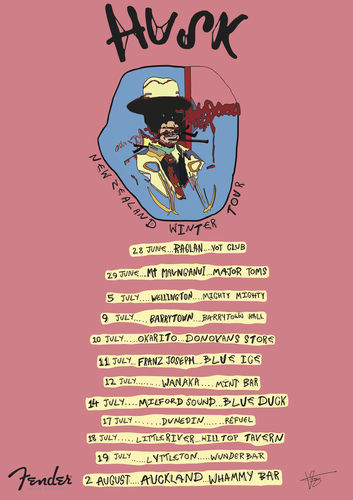 HUSK
NEW ZEALAND WINTER TOUR
28 JUNE....RAGLAN...YOT CLUB
29 JUNE....MT MAUNGANUI...MAJOR TOMS
5 JULY.....WELLINGTON....MIGHTY MIGHTY
9 JULY.....BARRYTOWN....BARRYTOWN HALL
10 JULY.....OKARITO....DONOVANS STORE
11 JULY.....FRANZ JOSEPH...BLUE ICE
12 JULY..........WANAKA......MINT BAR
14 JULY.....MILFORD SOUND...BLUE DUCK
17 JULY........DUNEDIN.....REFUEL
18 JULY.....LITTLE RIVER..HILLTOP TAVERN
19 JULY.....LYTTLETON....WUNDERBAR
2 AUGUST....AUCKLAND....WHAMMY BAR
Fender